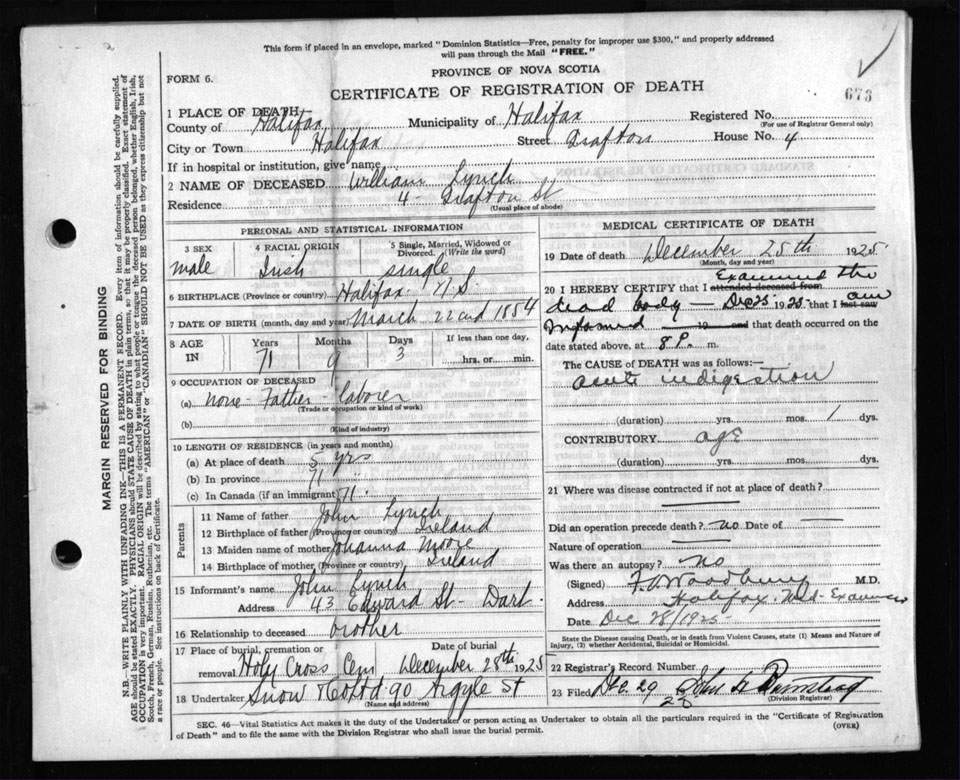 This form if placed in an envelope, marked "Dominion Statistics—Free, penalty for improper use $300," and properly addressed
will pass through the Mail "FREE."
PROVINCE OF NOVA SCOTIA
FORM 6.
CERTIFICATE OF REGISTRATION OF DEATH
673
1 PLACE OF DEATH—
County of Halifax Municipality of Halifax Registered No.
(For use of Registrar General only)
City or Town Halifax Street Grafton House No. 4
If in hospital or institution, give name
2 NAME OF DECEASED William Lynch
Residence 4 Grafton St
(Usual place of abode)
PERSONAL AND STATISTICAL INFORMATION
3 SEX 4 RACIAL ORIGIN 5 Single, Married, Widowed or Divorced. (Write the word)
male Irish single
6 BIRTHPLACE (Province or country) Halifax N.S.
7 DATE OF BIRTH (month, day and year) March 22nd 1854
8 AGE IN Years Months Days If less than one day,
71 9 3 hrs. or min.
9 OCCUPATION OF DECEASED
(a) none - Father - laborer
(Trade or occupation or kind of work)
(b)
(Kind of industry)
10 LENGTH OF RESIDENCE (in years and months)
(a) At place of death 5 yrs
(b) In province 71 "
(c) In Canada (if an immigrant) 71.
Parents
11 Name of father John Lynch
12 Birthplace of father (Province or country) Ireland
13 Maiden name of mother Johanna Moore
14 Birthplace of mother (Province or country) Ireland
15 Informant's name John Lynch
Address 43 Edward St. Dart.
16 Relationship to deceased brother
17 Place of burial, cremation or removal Date of burial
Holy Cross Cem December 28th 1925
18 Undertaker Snow & Co Ltd 90 Argyle St
(Name and address)
MEDICAL CERTIFICATE OF DEATH
19 Date of death December 25th 1925
(Month, day and year)
Examined the
20 I HEREBY CERTIFY that I attended deceased from
dead body — Dec 25 1925 that I last saw am
informed 19 and that death occurred on the
date stated above, at 8 P. m.
The CAUSE OF DEATH was as follows:—
acute indigestion
(duration) yrs. mos. 1 dys.
CONTRIBUTORY age
(duration) yrs. mos. dys.
21 Where was disease contracted if not at place of death?
Did an operation precede death? no Date of
Nature of operation
Was there an autopsy? no
(Signed) F. Woodbury M.D.
Address Halifax Med-Examiner
Date Dec 28/1925
State the Disease causing Death, or in death from Violent Causes, state (1) Means and Nature of
Injury, (2) whether Accidental, Suicidal or Homicidal.
22 Registrar's Record Number
23 Filed Dec. 29 John
(Division Registrar)
SEC. 46—Vital Statistics Act makes it the duty of the Undertaker or person acting as Undertaker to obtain all the particulars required in the "Certificate of Registration
of Death" and to file the same with the Division Registrar who shall issue the burial permit.
(OVER)
MARGIN RESERVED FOR BINDING
N.B.—WRITE PLAINLY WITH UNFADING INK—THIS IS A PERMANENT RECORD. Every item of information should be carefully supplied.
AGE should be stated EXACTLY. PHYSICIANS should STATE CAUSE OF DEATH in plain terms, so that it may be properly classified. Exact statement of
OCCUPATION is very important. RACIAL ORIGIN will be described by stating to what people or tongue the deceased person belonged, whether English, Irish,
Scotch, French, German, Russian, Ruthenian, etc. The terms "AMERICAN" or "CANADIAN" SHOULD NOT BE USED as they express citizenship but not
a race or people. See instructions on back of Certificate.